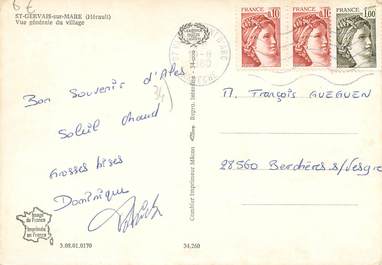 6 €
ST-GERVAIS-sur-MARE (Hérault)
Vue générale du village
FRANCE
0,10
FRANCE
0,10
FRANCE
1,00
Bon Souvenir d'Ales
Soleil chaud
Grosses bises
Dominique
M. François GUEGUEN
28560 Berchères s/Vesgre
Combier Imprimeur Mâcon
Image
de France
Imprimée en
France
3.08.01.0170
34.260